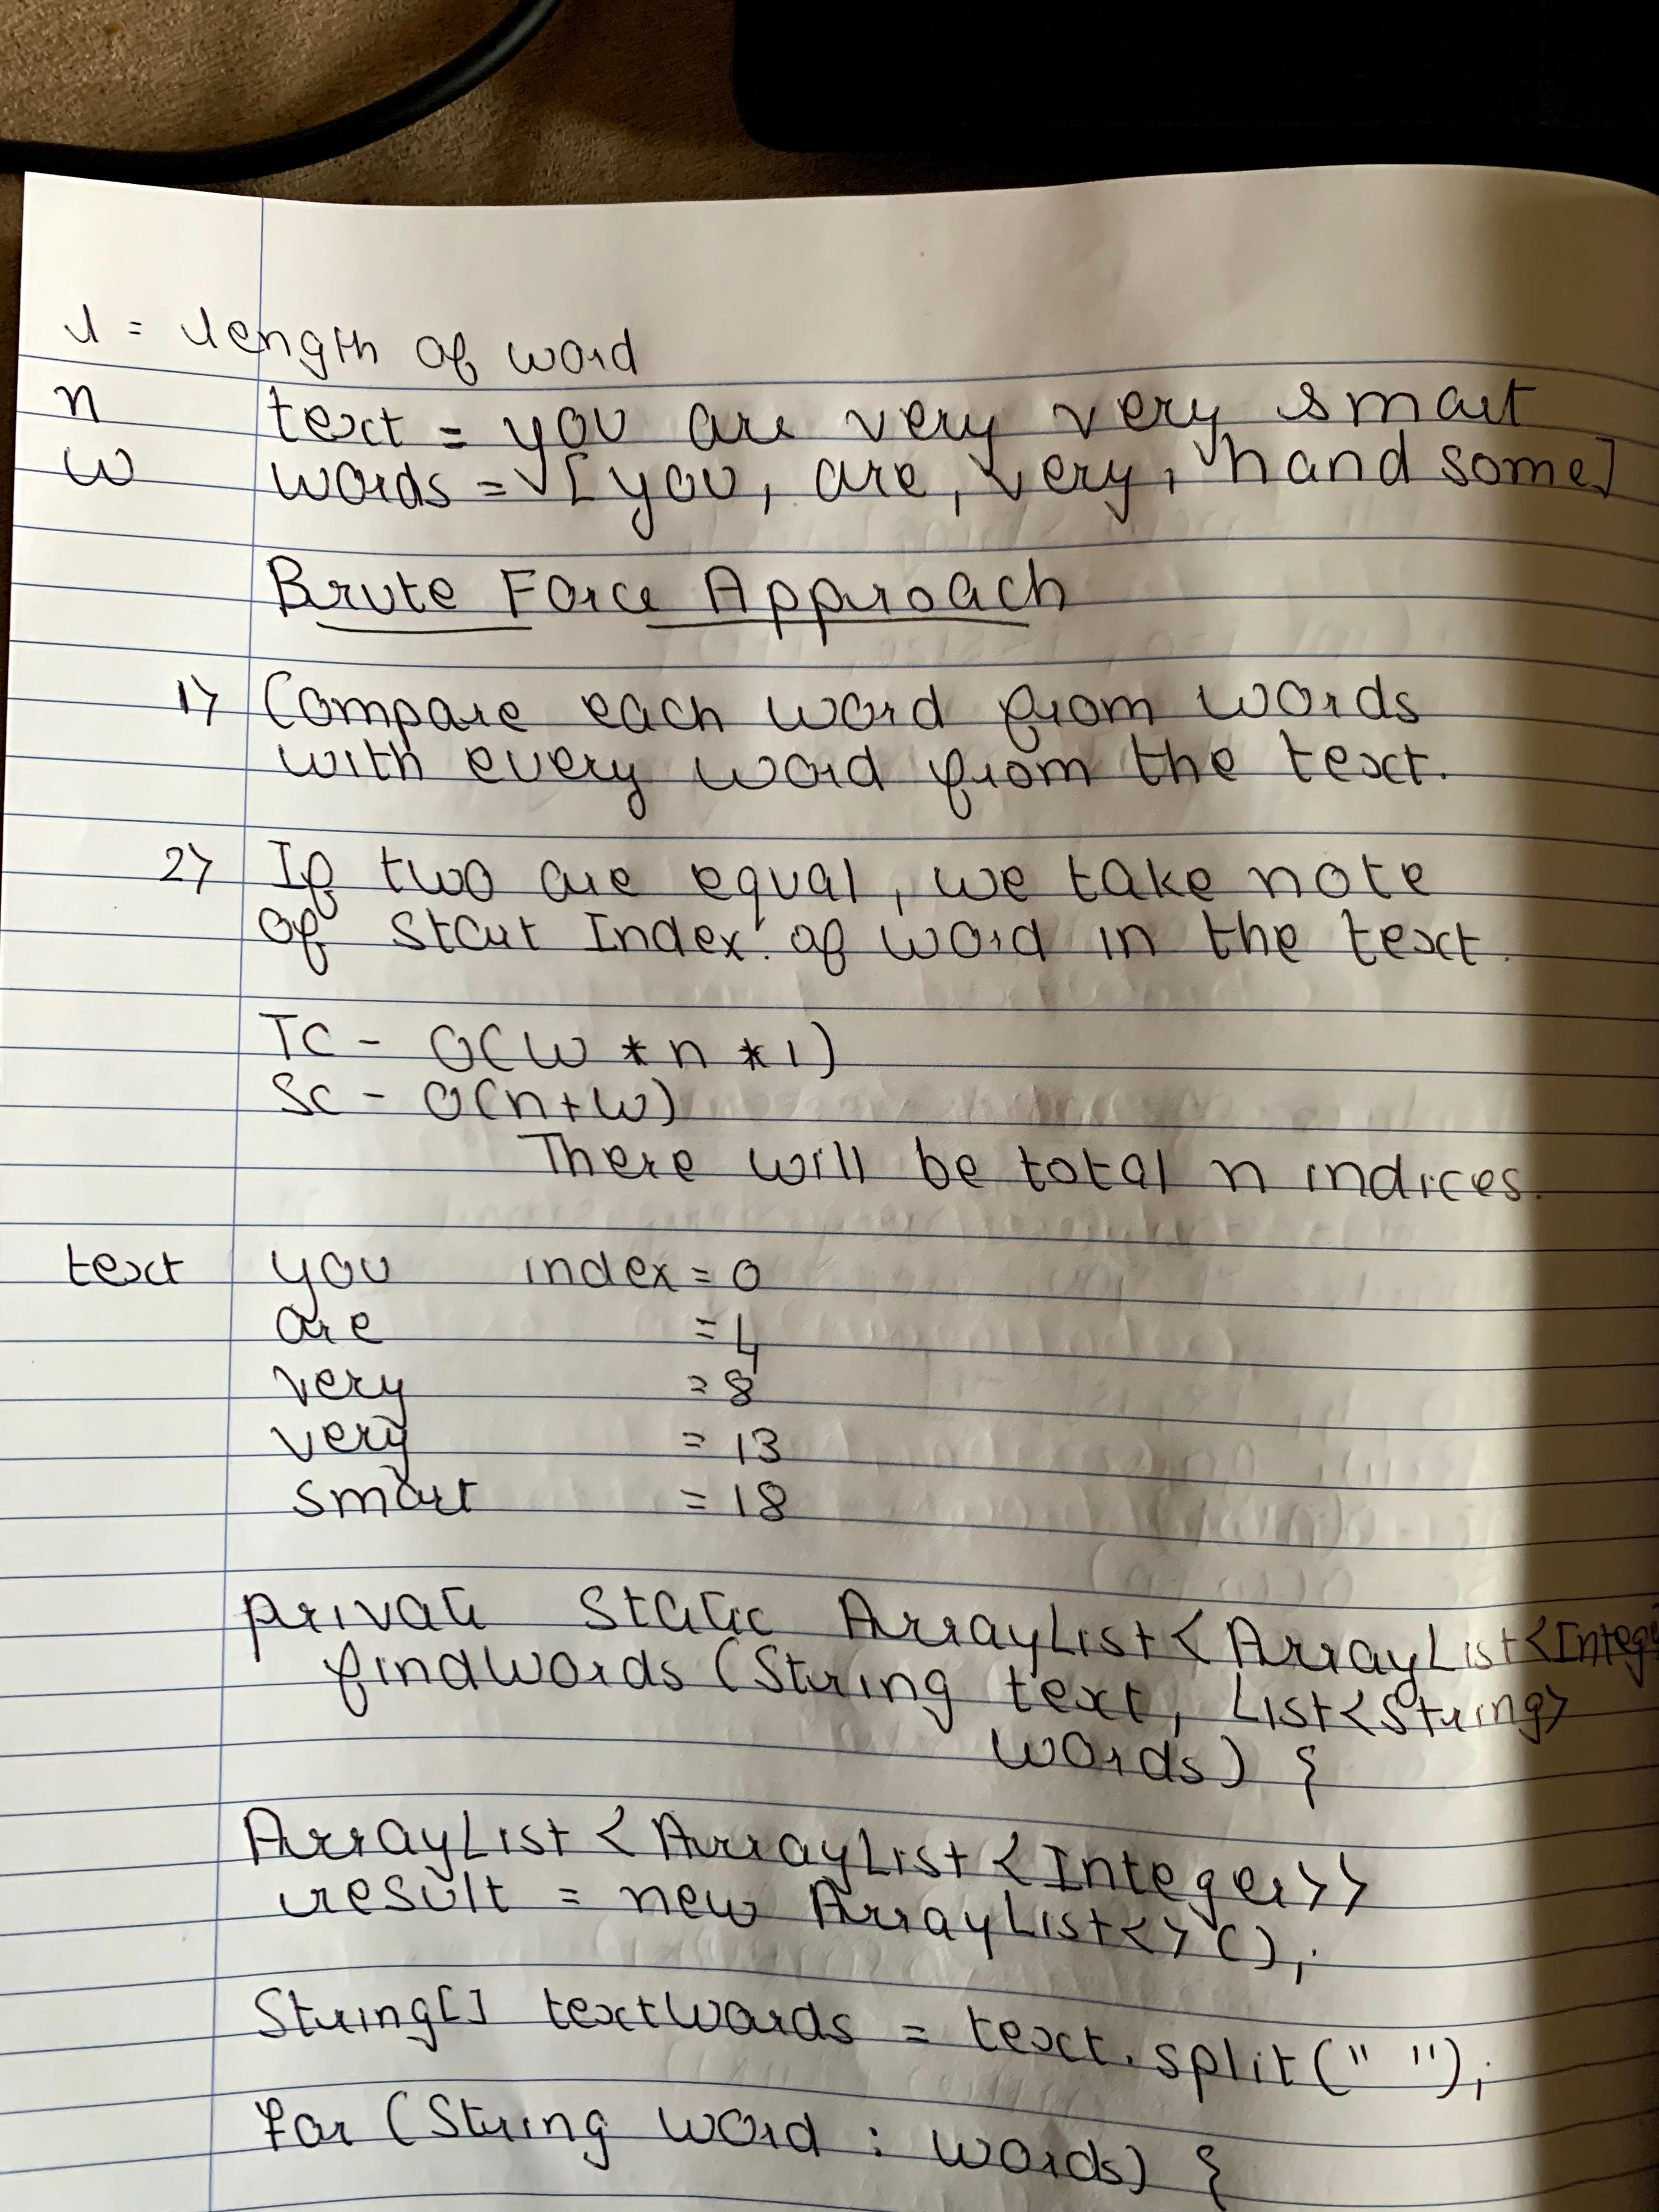 l = length of word
n text = you are very very smart
w words = [you, are, very, handsome]
Brute Force Approach
1) Compare each word from words
with every word from the text.
2) If two are equal, we take note
of start Index of word in the text.
TC - O(W * n * l)
SC - O(n+w)
There will be total n indices.
text you index = 0
are = 4
very = 8
very = 13
smart = 18
private static ArrayList<ArrayList<Intege
findWords (String text, List<String>
words) {
ArrayList<ArrayList<Integer>>
result = new ArrayList<>();
String[] textWords = text.split(" ");
for (String word : words) {